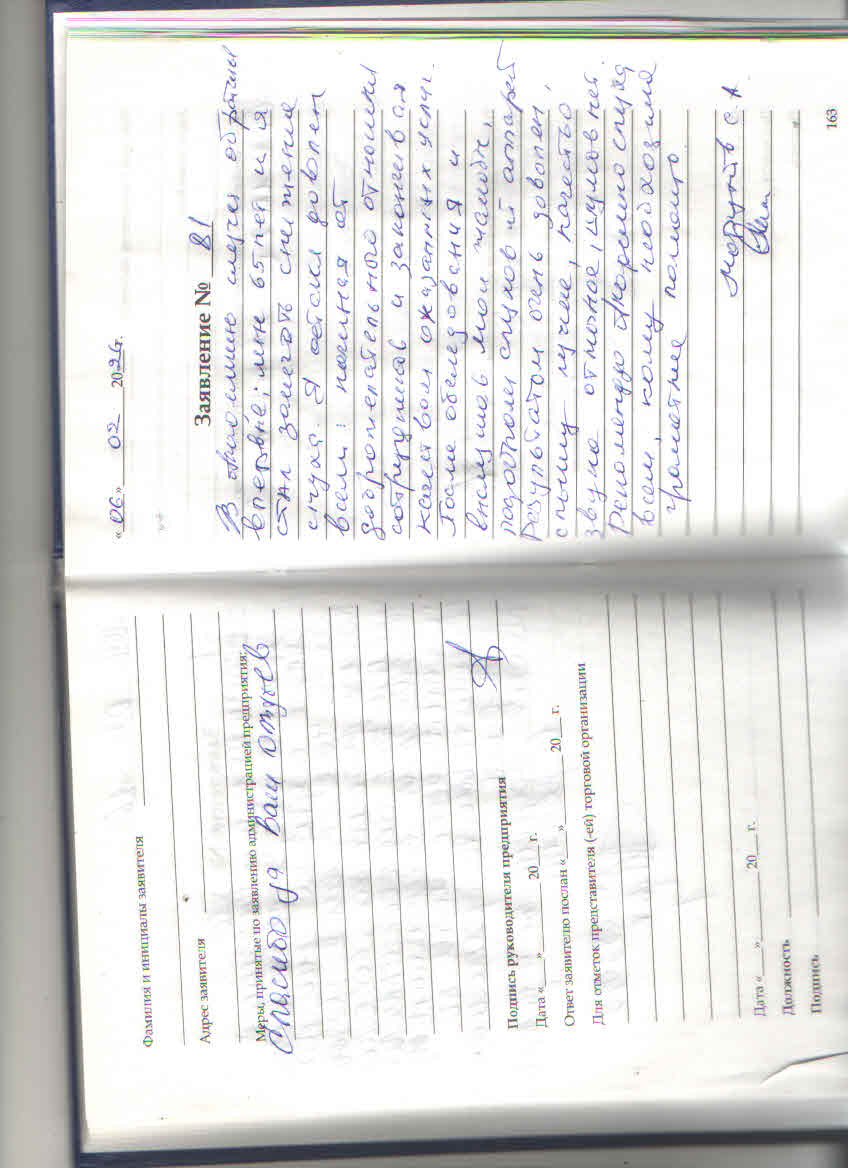 Фамилия и инициалы заявителя
Адрес заявителя
Меры, принятые по заявлению администрацией предприятия:
Спасибо за Ваш отзыв
Подпись руководителя предприятия
Дата «___»______ 20__ г.
Ответ заявителю послан «___»______ 20__ г.
Для отметок представителя (-ей) торговой организации
Дата «___»______ 20__ г.
Должность
Подпись
«06» 02 2026г.
Заявление № 81
В клинику слуха обратился
впервые; мне 65 лет и я
стал замечать снижение
слуха. Я остался доволен
всем: начиная от
доброжелательного отношения
сотрудников и заканчивая
качеством оказанных услуг.
После обследования и
мои жалобы,
подобрали слуховой аппарат
Результатом очень доволен,
слышу лучше, качество
звука отличное, шумов нет.
Рекомендую
всем, кому необходима
грамотная помощь
С. А.
163